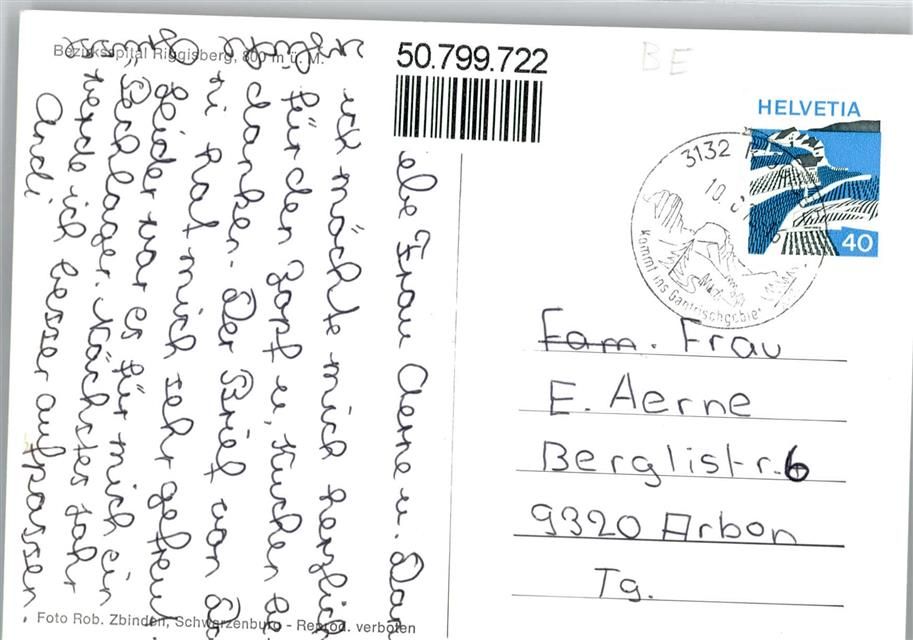 Bezirksspital Riggisberg, 800 m ü. M.
50.799.722
BE
HELVETIA
40
3132
10.
Kommt ins Gantrischgebiet
Fam. Frau
E. Aerne
Berglistr. 6
9320 Arbon
Tg.
Frau Aerne u.
ich möchte mich herzlich
für den Zopf u. Kuchen
danken. Der Brief von
hat mich sehr gefreut
Leider war es für mich ein
Schlager. Nächstes Jahr
werde ich besser aufpassen.
Grüsse
Andi
Foto Rob. Zbinden, Schwarzenburg - Reprod. verboten